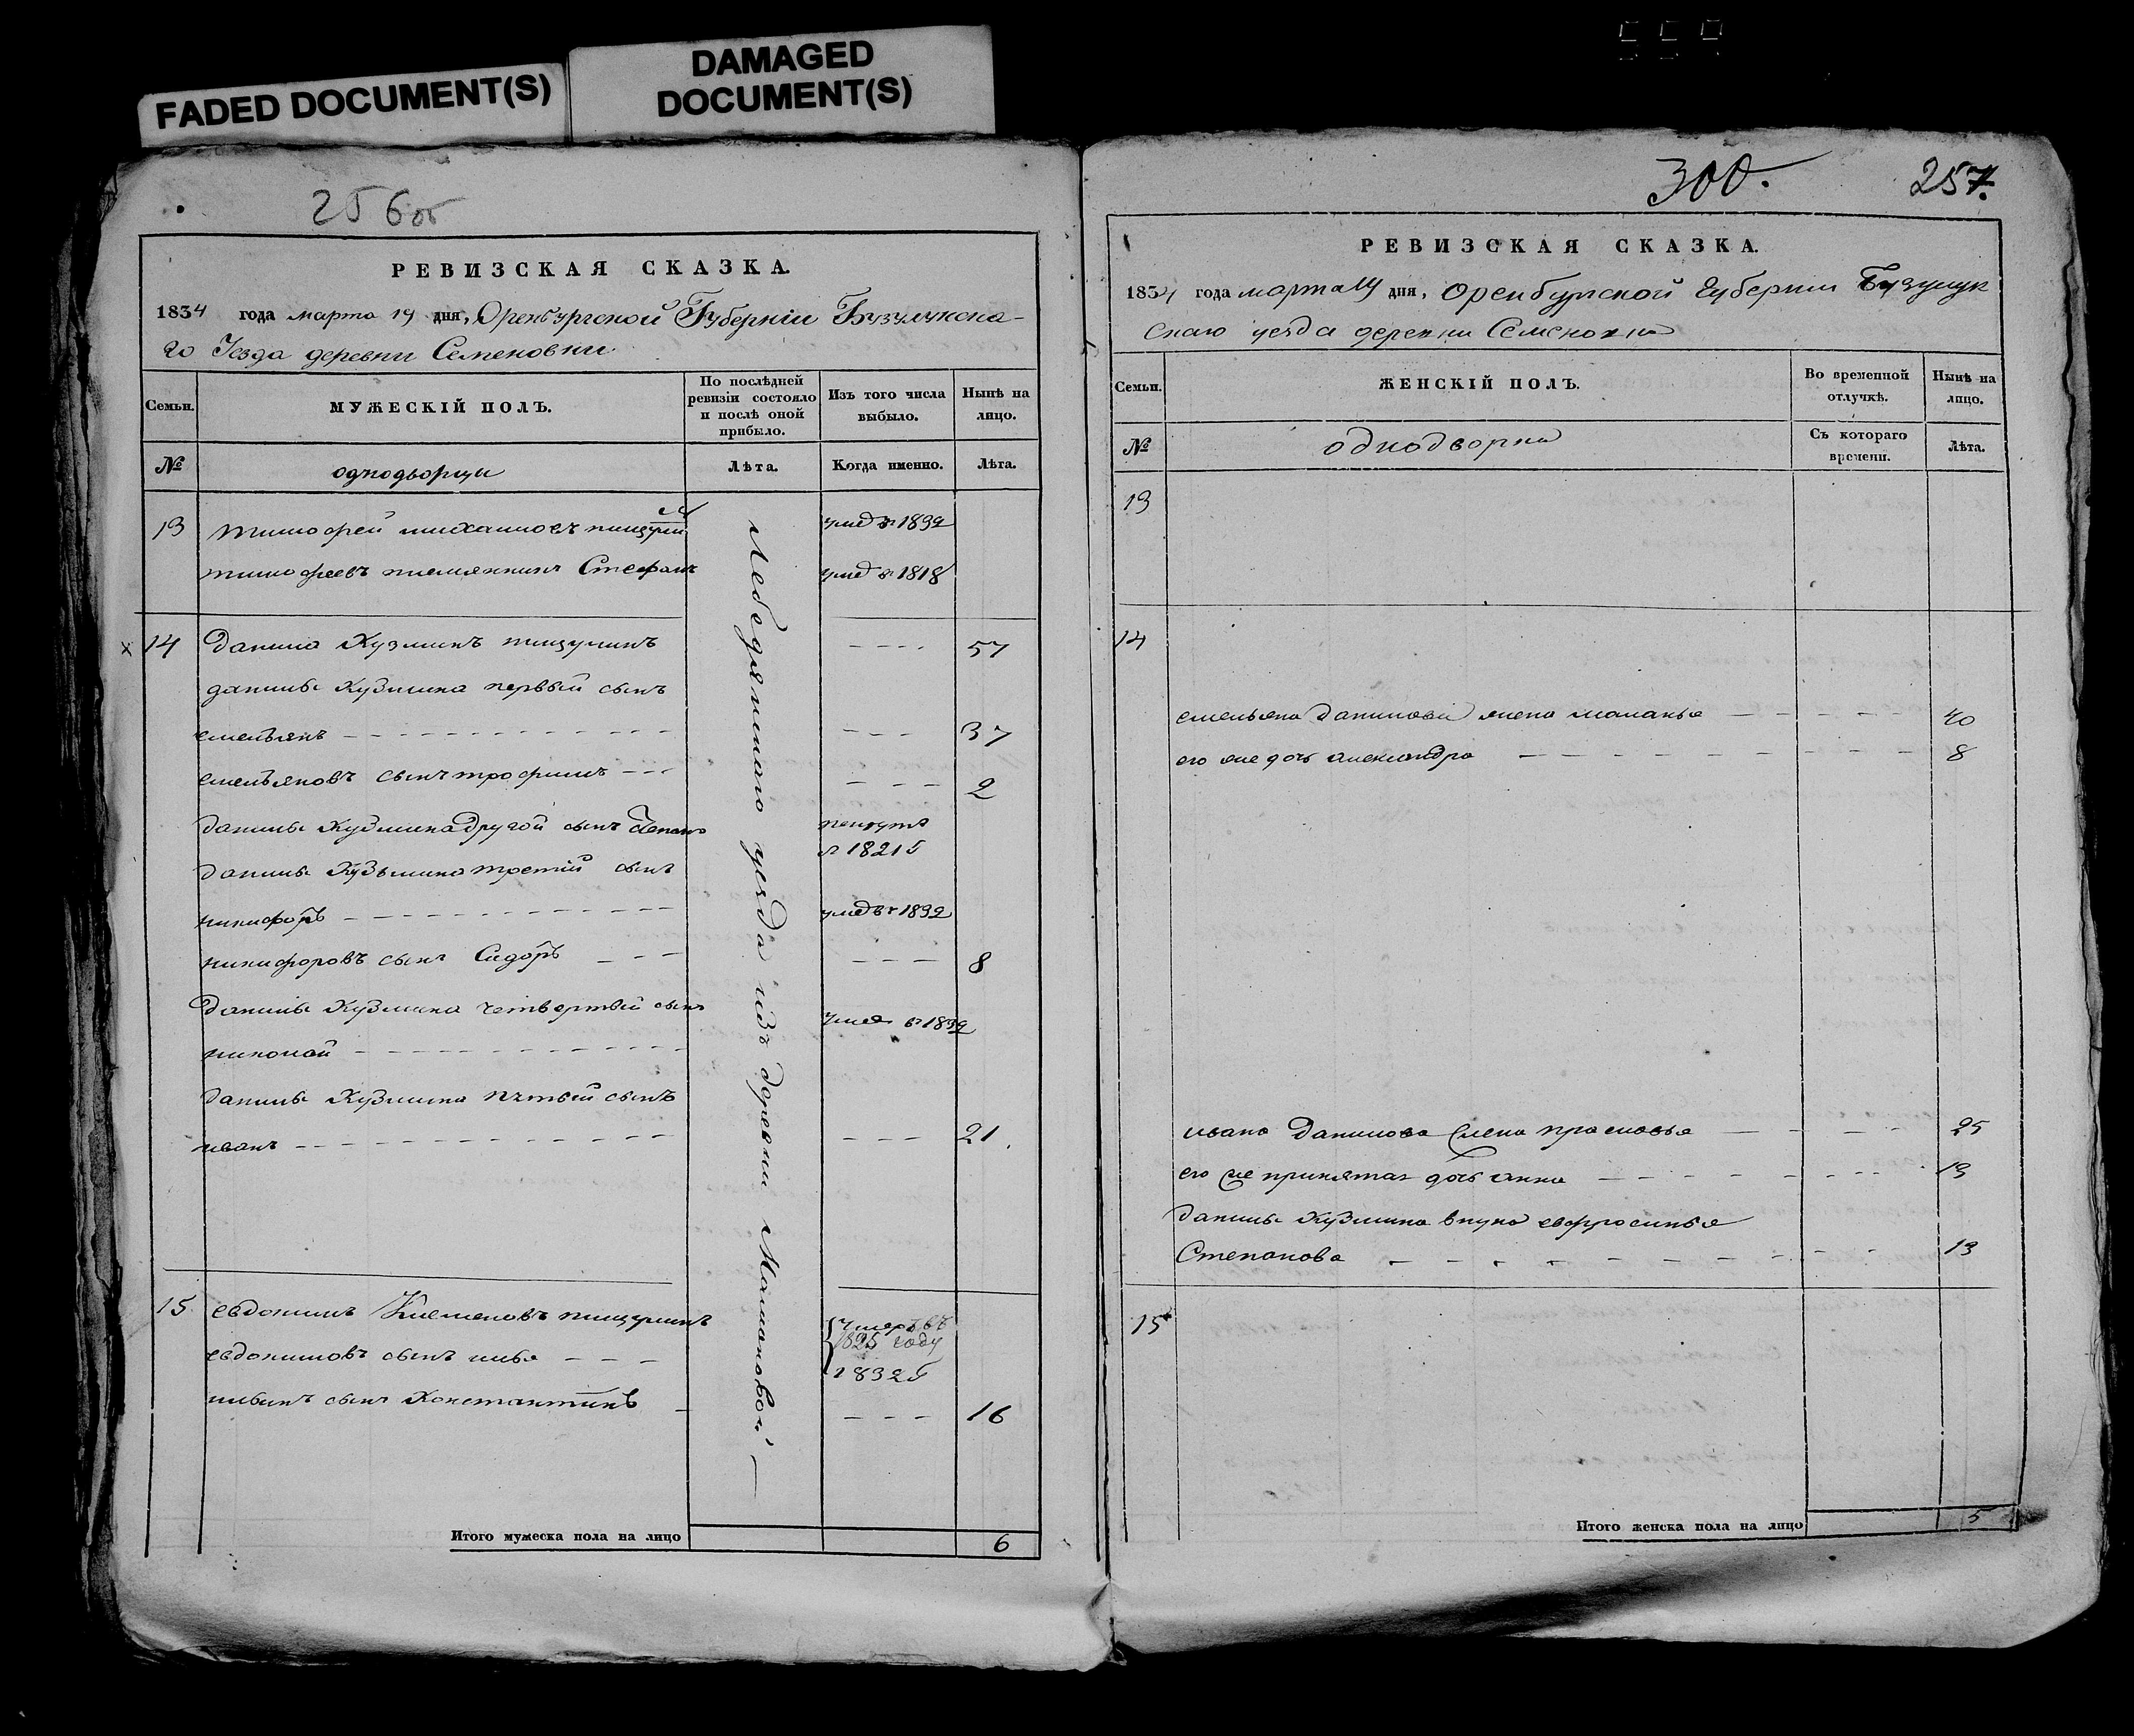 FADED DOCUMENT(S)
DAMAGED
DOCUMENT(S)
256об
РЕВИЗСКАЯ СКАЗКА.
1834 года марта 19 дня, Оренбургской Губерніи Бузулукска-
го Уезда деревни Семеновки
Семьи.
МУЖЕСКІЙ ПОЛЪ.
По послѣдней ревизіи состояло и послѣ оной прибыло.
Изъ того числа выбыло.
Нынѣ на лицо.
№
однодворцы
Лѣта.
Когда именно.
Лѣта.
Лебедянскаго уезда изъ деревни
13 тимофей михаиловъ умер въ 1832
тимофеевъ племянникъ Стефанъ умер въ 1818
14 Данила Кузминъ пищулинъ - - - - 57
данилы Кузмина первый сынъ
емельянъ - - - 37
емельяновъ сынъ трофимъ - - - 2
данилы Кузмина другой сынъ Степанъ
в 1821 г
данилы Кузьмина третий сынъ
никифоръ умер въ 1832
никифоровъ сынъ Сидоръ - - - 8
данилы Кузмина четвертый сынъ умер въ 1832
николай
данилы Кузмина пятый сынъ
иванъ - - - 21.
15 евдокимъ пищулинъ умеръ въ
1825 году
евдокимовъ сынъ илья - - - 1832 г
ильинъ сынъ Константинъ - - - 16
Итого мужеска пола на лицо 6
300.
257.
РЕВИЗСКАЯ СКАЗКА.
1834 года марта 19 дня, Оренбургской Губернии Бузулук
скаго уезда деревни Семеновки
Семьи.
ЖЕНСКІЙ ПОЛЪ.
Во временной отлучкѣ.
Нынѣ на лицо.
№
однодворки
Съ котораго времени.
Лѣта.
13
14
емельяна Данилова жена маланья 40
его же дочь александра 8
ивана Данилова жена прасковья 25
его же принятая дочь анна 13
данилы Кузмина внука евфросинья
Степанова 13
15
Итого женска пола на лицо 5